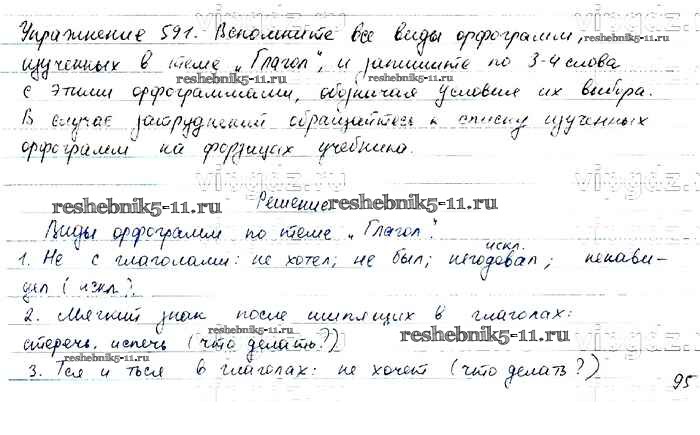 Упражнение 591. Вспомните все виды орфограмм,
изученных в теме „Глагол", и запишите по 3-4 слова
reshebnik5-11.ru reshebnik5-11.ru
с этими орфограммами, обозначая условия их выбора.
В случае затруднений обращайтесь к списку изученных
орфограмм на форзацах учебника.
reshebnik5-11.ru Решение reshebnik5-11.ru
Виды орфограмм по теме „Глагол".
искл.
1. Не с глаголами: не хотел; не был; негодовал; ненави-
дел (искл.).
2. Мягкий знак после шипящих в глаголах:
стеречь, испечь (что делать?) reshebnik5-11.ru
reshebnik5-11.ru
3. Тся и ться в глаголах: не хочет (что делать?)
95